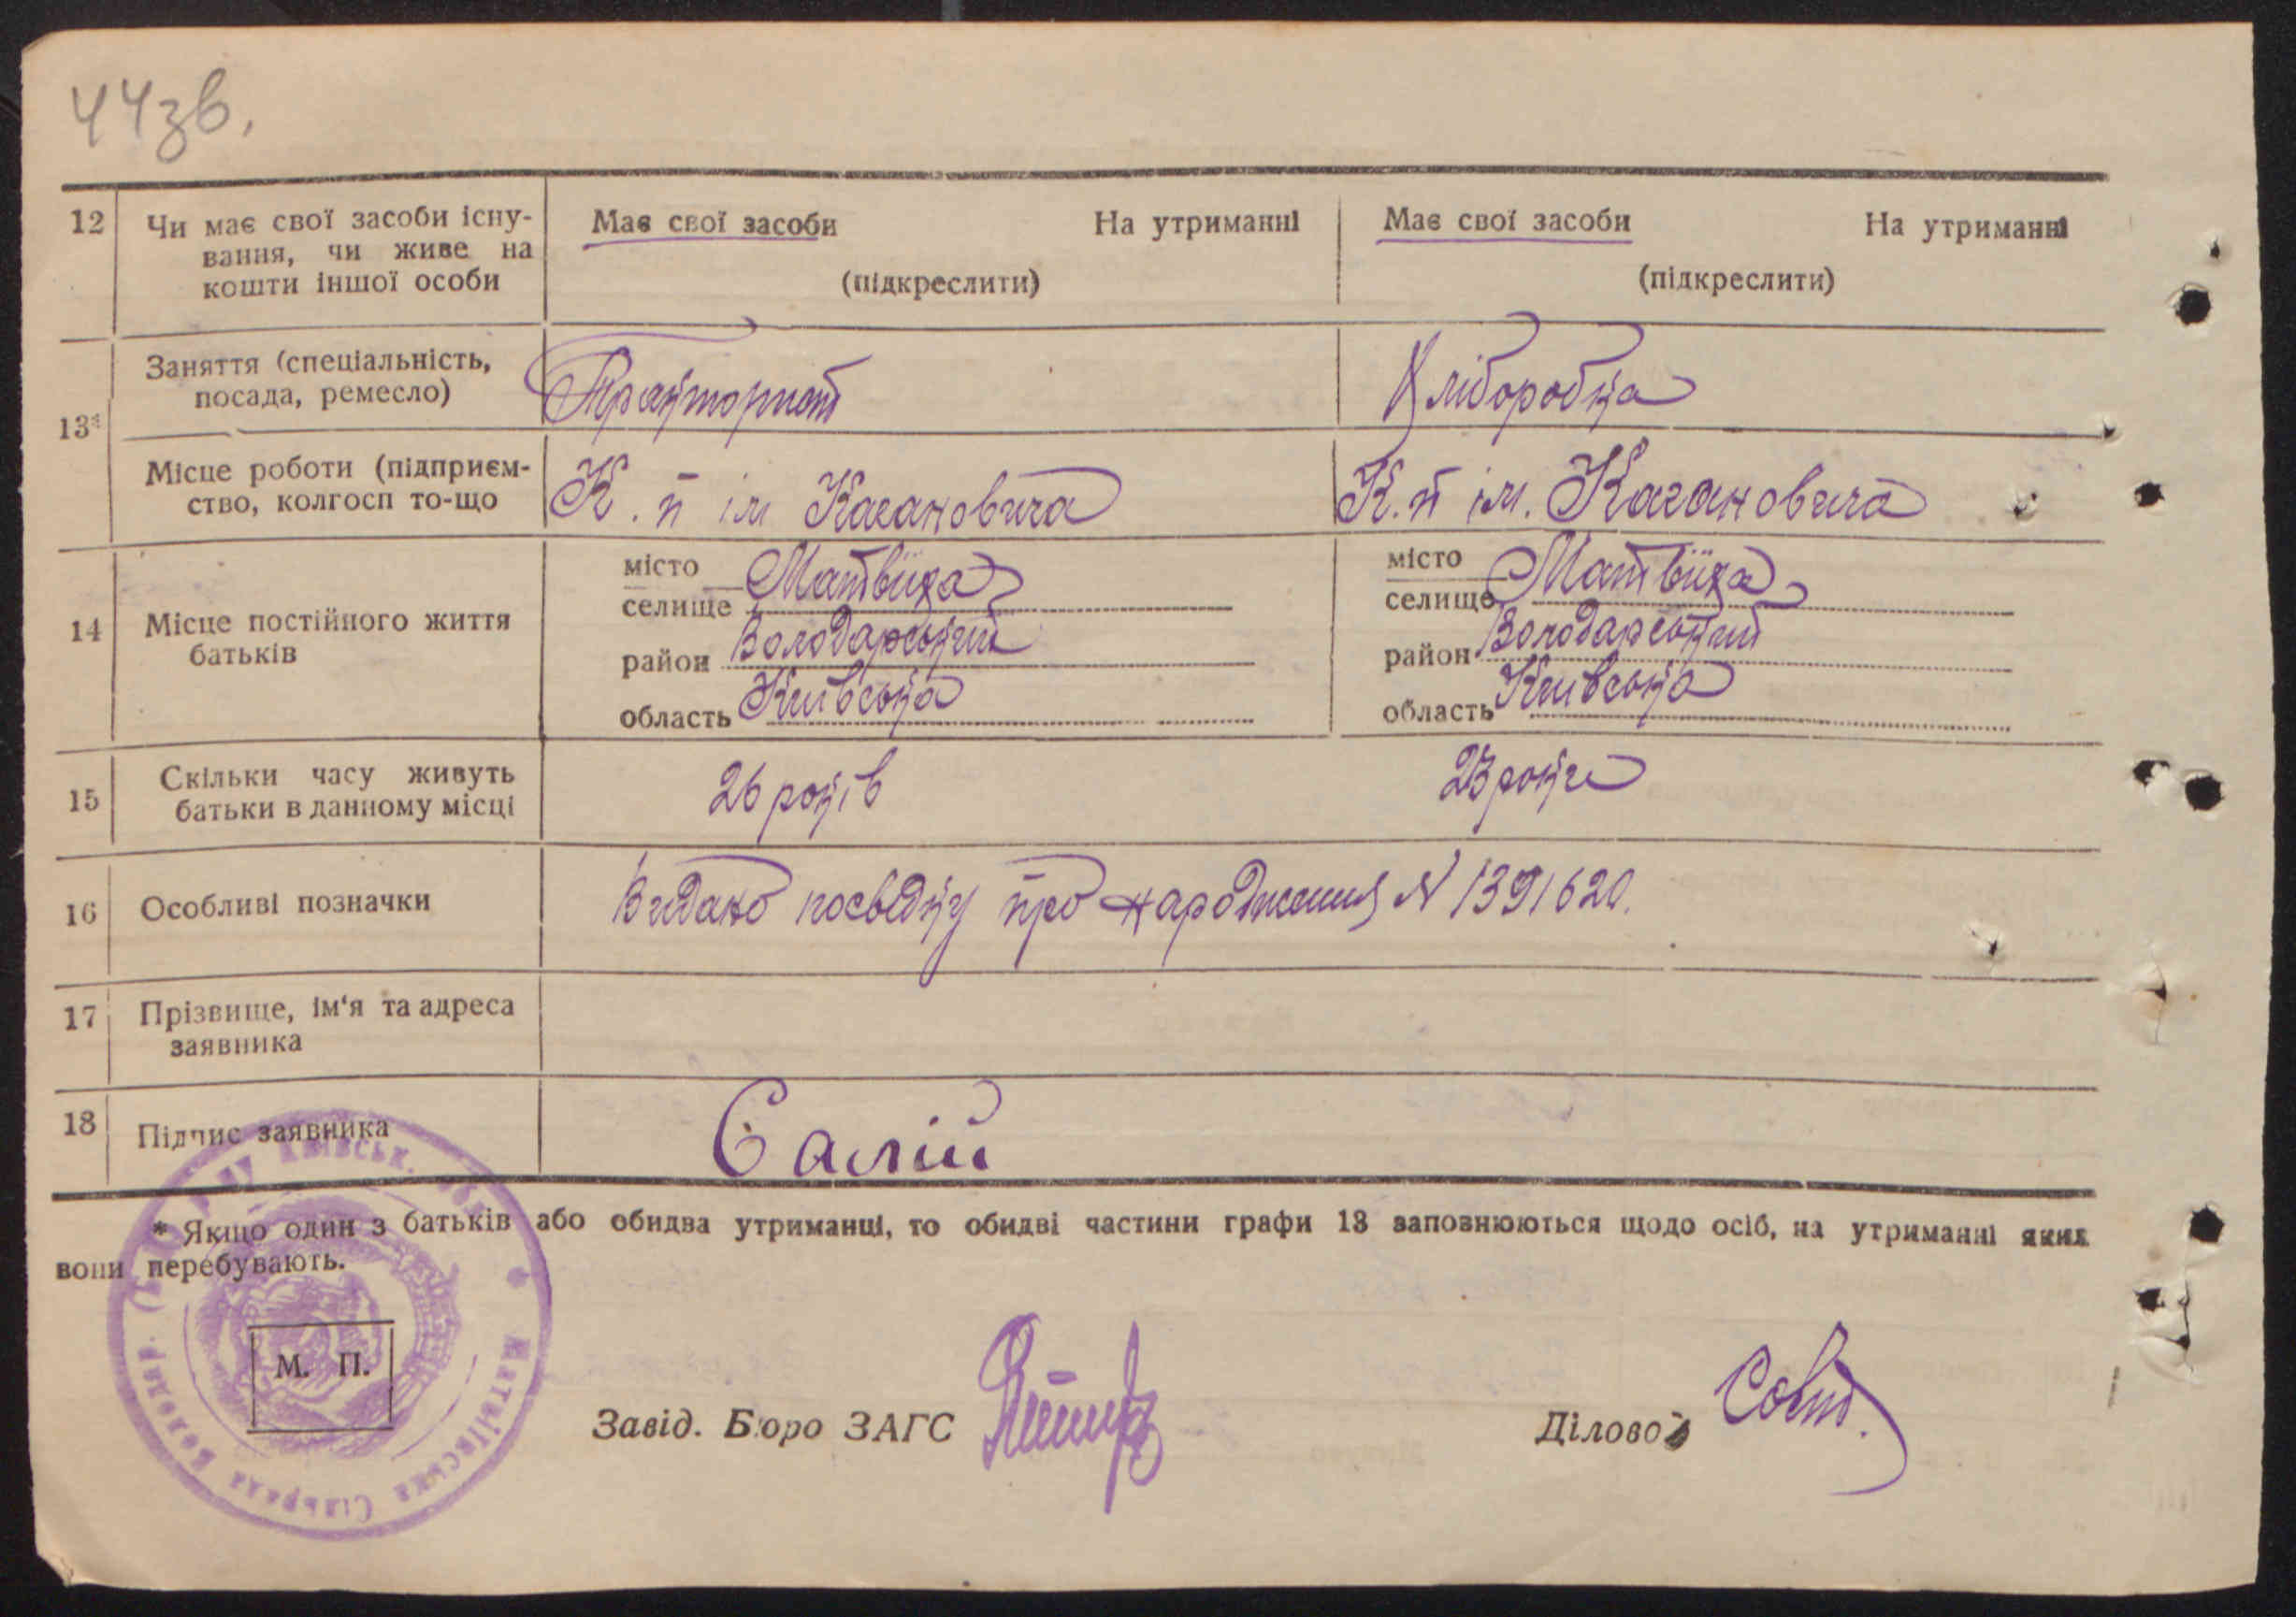 44зв.
12 Чи має свої засоби існу- Має свої засоби На утриманні Має свої засоби На утриманні
вання, чи живе на
кошти іншої особи (підкреслити) (підкреслити)
13* Заняття (спеціальність, Тракторист Хліборобка
посада, ремесло)
Місце роботи (підприєм- К. п ім Кагановича К. п ім. Кагановича
ство, колгосп то-що
14 Місце постійного життя місто Матвіїха місто Матвіїха
батьків селище селище
район Володарський район Володарський
область Київська область Київська
15 Скільки часу живуть 26 років 23 роки
батьки в данному місці
16 Особливі позначки Видано посвідку про народження N 1391620.
17 Прізвище, ім'я та адреса
заявника
18 Підпис заявника Салій
* Якщо один з батьків або обидва утриманці, то обидві частини графи 13 заповнюються щодо осіб, на утриманні яких
вони перебувають.
М. П.
Завід. Бюро ЗАГС Діловод
Матвіївська Сільрада Володар. Київськ. обл.